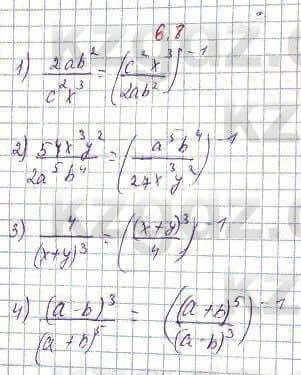 6.8
1) 2ab²/c²x³ = (c²x³/2ab²)⁻¹
2) 54x³y²/2a⁵b⁴ = (a⁵b⁴/27x³y²)⁻¹
3) 4/(x+y)³ = ((x+y)³/4)⁻¹
4) (a-b)³/(a+b)⁵ = ((a+b)⁵/(a-b)³)⁻¹